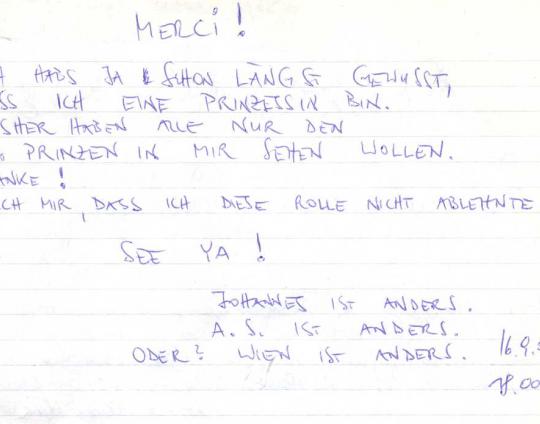 MERCi!
HABS JA SCHON LÄNGST GEWUSST,
SS ICH EINE PRINZESSIN BIN.
SHER HABEN ALLE NUR DEN
PRINZEN IN MIR SEHEN WOLLEN.
ANKE!
CH MIR, DASS ICH DIESE ROLLE NICHT ABLEHNTE
SEE YA!
JOHANNES IST ANDERS.
A.S. IST ANDERS.
ODER? WIEN IST ANDERS.
16.9.
18.00